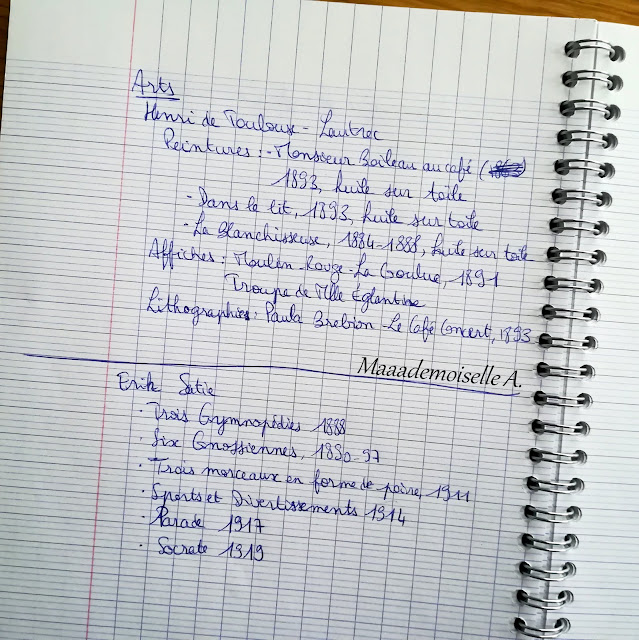 Arts
Henri de Toulouse-Lautrec
Peintures : - Monsieur Boileau au café (
1893, huile sur toile
- Dans le lit, 1893, huile sur toile
- La Blanchisseuse, 1884-1888, huile sur toile
Affiches : Moulin-Rouge-La Goulue, 1891
Troupe de Mlle Églantine
Lithographies : Paula Brebion - Le Café Concert, 1893
Maaademoiselle A.
Erik Satie
· Trois Gymnopédies 1888
· Six Gnossiennes, 1890-97
· Trois morceaux en forme de poire, 1911
· Sports et Divertissements 1914
· Parade 1917
· Socrate 1919